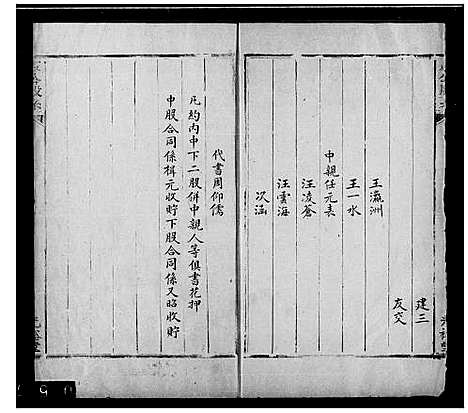 建三
友交
王瀛洲
王一水
中親任元表
汪凌蒼
汪雲海
次涵
代書周仰儒
凡約內中下二股併中親人等俱書花押
中股合同係楫元收貯下股合同係又昭收貯